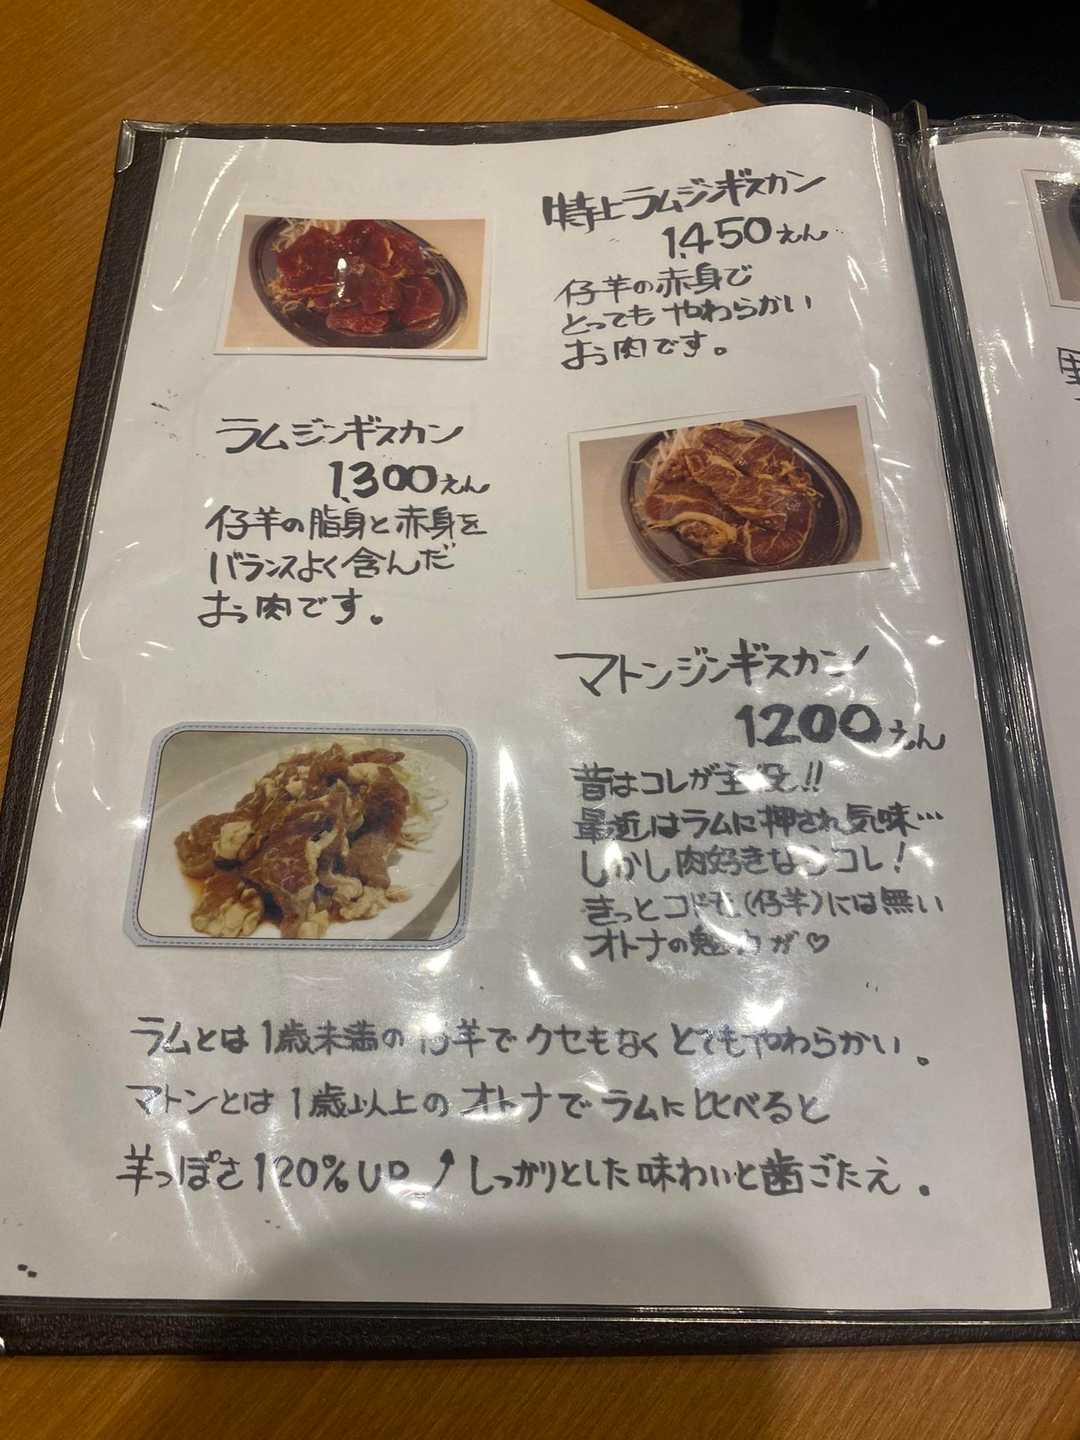 特上ラムジンギスカン
1,450えん
仔羊の赤身で
とってもやわらかい
お肉です。
ラムジンギスカン
1,300えん
仔羊の脂身と赤身を
バランスよく含んだ
お肉です。
マトンジンギスカン
1,200えん
昔はコレが主役!!
最近はラムに押され気味…
しかし肉好きならコレ!
きっとコドモ(仔羊)には無い
オトナの魅力が♡
ラムとは1歳未満の仔羊でクセもなくとてもやわらかい。
マトンとは1歳以上のオトナでラムに比べると
羊っぽさ120%UP⤴しっかりとした味わいと歯ごたえ。